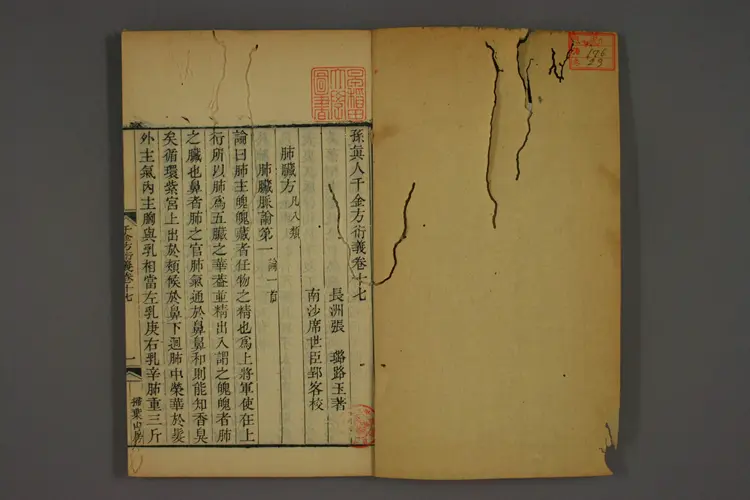 孫眞人千金方衍義卷十七
長洲張　璐路玉著
南沙席世臣郢客校
肺臟方凡八類
肺臟脈論第一論一首
論曰肺主魄魄臟者任物之精也爲上將軍使在上
行所以肺爲五臟之華蓋並精出入謂之魄魄者肺
之臟也鼻者肺之官肺氣通於鼻鼻和則能知香臭
矣循環紫宮上出於頰候於鼻下迴肺中榮華於髮
外主氣內主胸與乳相當左乳庚右乳辛肺重三斤
千金方衍義卷十七
一
掃葉山房
早稲田大學圖書
176
23